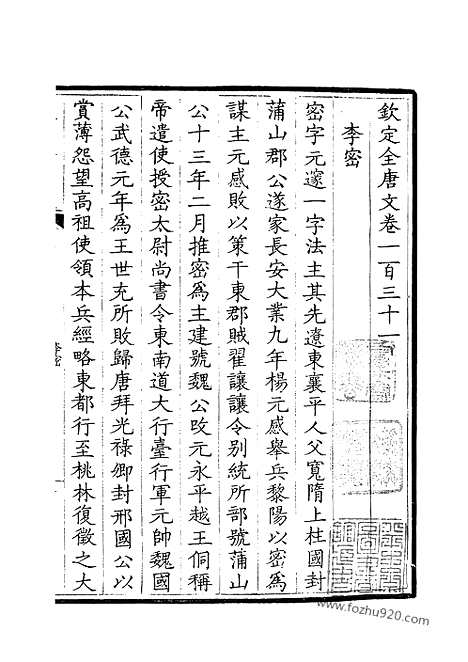 欽定全唐文卷一百三十一
李密
密字元邃一字法主其先遼東襄平人父寬隋上柱國封
蒲山郡公遂家長安大業九年楊元感舉兵黎陽以密為
謀主元感敗以策干東郡賊翟讓讓令别統所部號蒲山
公十三年二月推密為主建號魏公攺元永平越王侗稱
帝遣使授密太尉尚書令東南道大行臺行軍元帥魏國
公武德元年為王世充所敗歸唐拜光祿卿封邢國公以
賞薄怨望高祖使領本兵經略東都行至桃林復徵之大
李密
www.fozhu920.com